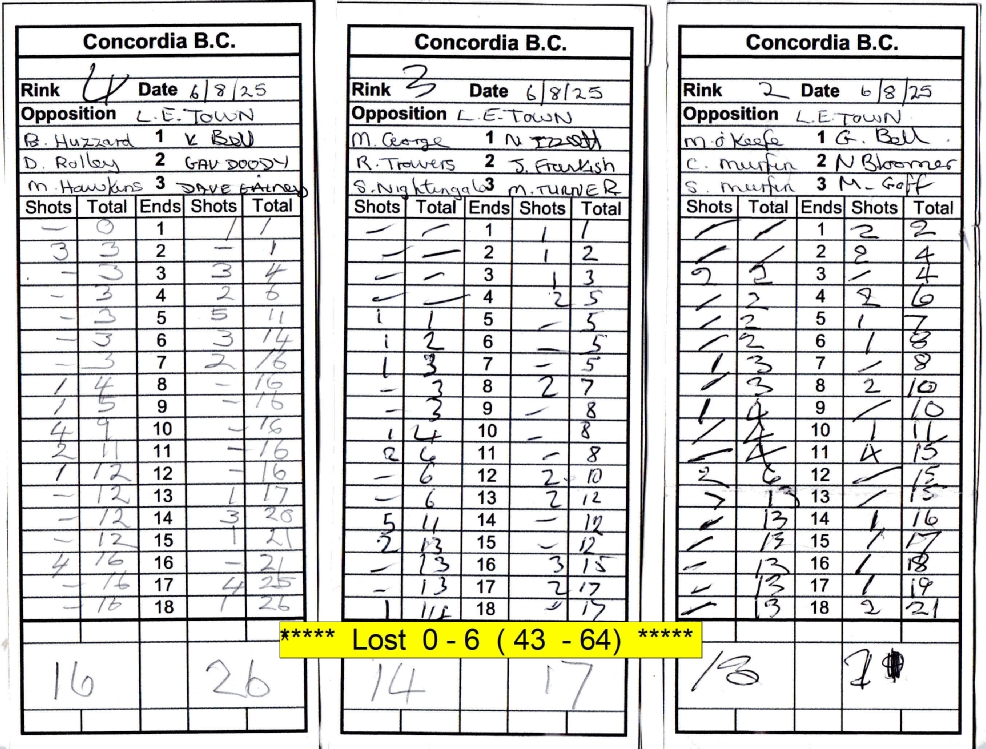 Concordia B.C.
Rink 4 Date 6/8/25
Opposition L.E. TOWN
B. Huzzard 1 K Bell
D. Rolley 2 GAV DOODY
M. Hawkins 3 DAVE
Shots Total Ends Shots Total
- 0 1 1 1
3 3 2 - 1
- 3 3 3 4
- 3 4 2 6
- 3 5 5 11
- 3 6 3 14
- 3 7 2 16
1 4 8 - 16
1 5 9 - 16
4 9 10 - 16
2 11 11 - 16
1 12 12 - 16
- 12 13 1 17
- 12 14 3 20
- 12 15 1 21
4 16 16 - 21
- 16 17 4 25
- 16 18 1 26
16 26
Concordia B.C.
Rink 3 Date 6/8/25
Opposition L.E. TOWN
M. George 1 N
R. Trowers 2 J. Frankish
S. Nightingale 3 M. TURNER
Shots Total Ends Shots Total
- - 1 1 1
- - 2 1 2
- - 3 1 3
- - 4 2 5
1 1 5 - 5
1 2 6 - 5
1 3 7 - 5
- 3 8 2 7
- 3 9 - 8
1 4 10 - 8
2 6 11 - 8
- 6 12 2 10
- 6 13 2 12
5 11 14 - 12
2 13 15 - 12
- 13 16 3 15
- 13 17 2 17
1 14 18 - 17
14 17
Concordia B.C.
Rink 2 Date 6/8/25
Opposition L.E. TOWN
M. O'Keefe 1 G. Bell
C. Murfin 2 N Bloomer
S. Murfin 3 M. Goff
Shots Total Ends Shots Total
/ / 1 2 2
/ / 2 2 4
2 2 3 / 4
/ 2 4 2 6
/ 2 5 1 7
/ 2 6 1 8
1 3 7 / 8
/ 3 8 2 10
1 4 9 / 10
/ 4 10 1 11
/ 4 11 4 15
2 6 12 / 15
7 13 13 / 15
/ 13 14 1 16
/ 13 15 1 17
/ 13 16 1 18
/ 13 17 1 19
/ 13 18 2 21
13 21
***** Lost 0 - 6 ( 43 - 64) *****